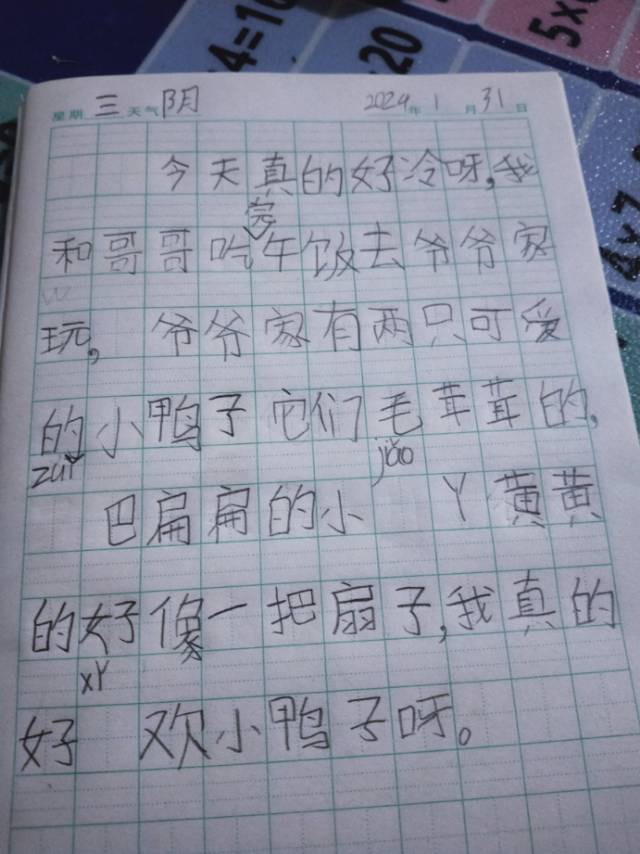 4=16
20
5×6
4×7
星期 三 天气 阴 2024年 1月 31日
今天真的好冷呀,我
完
和哥哥吃午饭去爷爷家
玩, 爷爷家有两只可爱
的小鸭子它们毛茸茸的,
zuǐ jiǎo
巴扁扁的小 丫黄黄
的好像一把扇子,我真的
xǐ
好 欢小鸭子呀。